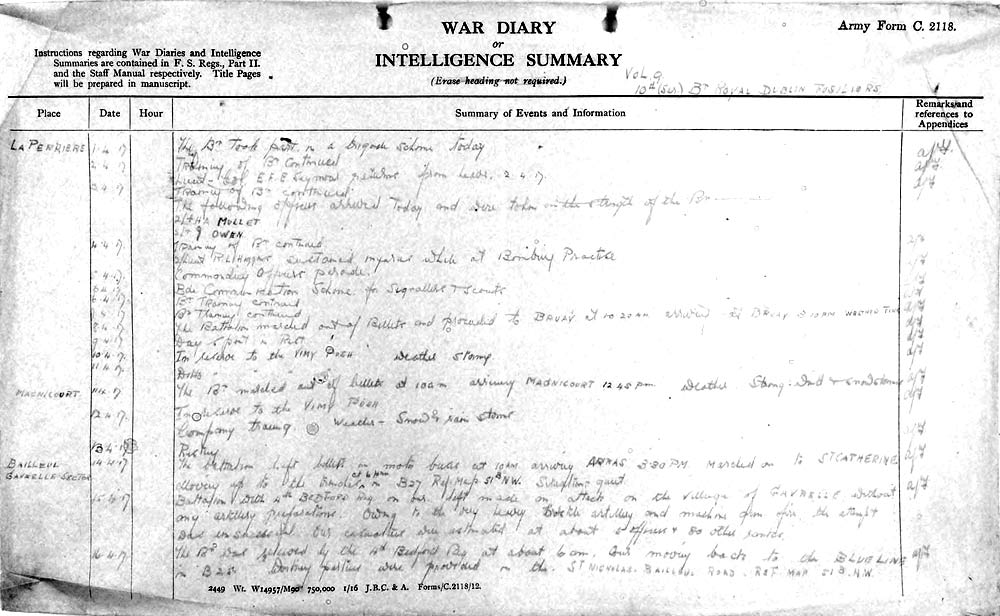 WAR DIARY
or
INTELLIGENCE SUMMARY
(Erase heading not required.)
Army Form C. 2118.
Instructions regarding War Diaries and Intelligence
Summaries are contained in F. S. Regs., Part II.
and the Staff Manual respectively. Title Pages
will be prepared in manuscript.
VOL. 9
10th (Ser) Bn ROYAL DUBLIN FUSILIERS
Place Date Hour Summary of Events and Information Remarks and references to Appendices
1.4.17 The Bn took part in a Brigade Scheme today
2.4.17 Training of Bn continued
Lieut-Col E.F.E Seymour returns from leave. 2.4.17.
3.4.17 Training of Bn continued
The following officers arrived today and were taken on the strength of the Bn
2/Lt H.A MULLET
OWEN
4.4.17. Training of Bn continued
2/Lieut R.L. sustained injuries while at Bombing Practice
5.4.17. Commanding Officers parade.
Bde Communication Scheme for Signallers & Scouts
6.4.17. Bn Training continued
Bn Training continued
8.4.17. The Battalion marched out of Billets and proceeded to BRUAY at 10.20am arrived at BRUAY
9.4.17. Day spent in Rest
10.4.17. In reserve to the VIMY PUSH Weather Stormy
11.4.17. Ditto
MAGNICOURT 11.4.17 The Bn marched out of billets at 10am arriving MAGNICOURT 12.45pm. Weather Strong Wind & Snowstorms
In reserve to the VIMY PUSH
12.4.17. Company training. Weather - Snow & rain storms
13.4.17 Resting
BAILLEUL 14.4.17 The Battalion left billets in motor buses at 10am arriving ARRAS 3.30PM. Marched on to ST CATHERINE
GAVRELLE SECTOR moving up to the trenches at in B27 Ref Map 51B N.W. Situation quiet
15.4.17 Battalion with 4th BEDFORD Reg on our left made an attack on the village of GAVRELLE without
any artillery preparations. Owing to the very heavy hostile artillery and machine gun fire the attempt
was unsuccessful. Our casualties were estimated at about 5 officers & 80 other ranks.
16.4.17. The Bn was relieved by the 4th Bedford Reg at about 6am. Our moving back to the BLUE LINE
in B25. Working parties were provided on the ST NICHOLAS. BAILLEUL ROAD. REF. MAP 51B. N.W.
2449 Wt. W14957/M90 750,000 1/16 J.B.C. & A. Forms/C.2118/12.